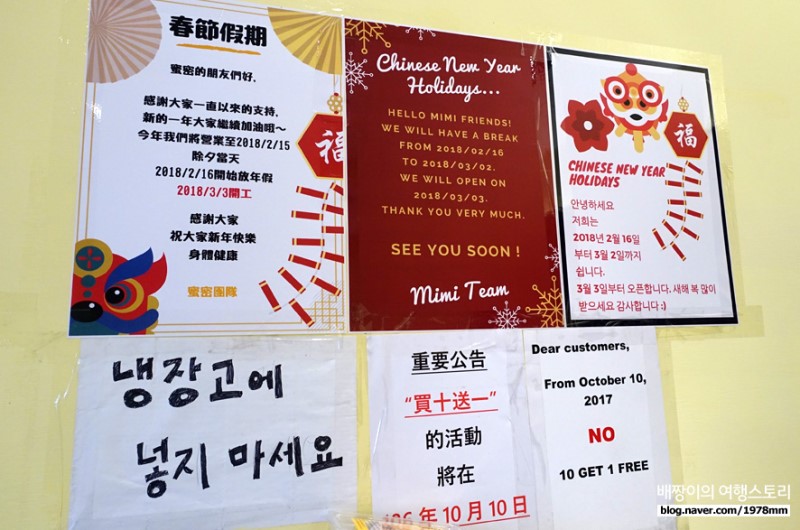 春節假期
蜜密的朋友們好,
感謝大家一直以來的支持,
新的一年大家繼續加油哦~
今年我們將營業至2018/2/15
除夕當天
2018/2/16開始放年假
2018/3/3開工
感謝大家
祝大家新年快樂
身體健康
蜜密團隊
福
Chinese New Year
Holidays...
HELLO MIMI FRIENDS!
WE WILL HAVE A BREAK
FROM 2018/02/16
TO 2018/03/02.
WE WILL OPEN ON
2018/03/03.
THANK YOU VERY MUCH.
SEE YOU SOON !
Mimi Team
福
CHINESE NEW YEAR
HOLIDAYS
안녕하세요
저희는
2018년 2월 16일
부터 3월 2일까지
쉽니다.
3월 3일부터 오픈합니다. 새해 복 많이
받으세요 감사합니다 :)
냉장고에
넣지 마세요
重要公告
“買十送一”
的活動
將在
06 年 10 月 10 日
Dear customers,
From October 10,
2017
NO
10 GET 1 FREE
배짱이의 여행스토리
blog.naver.com/1978mm